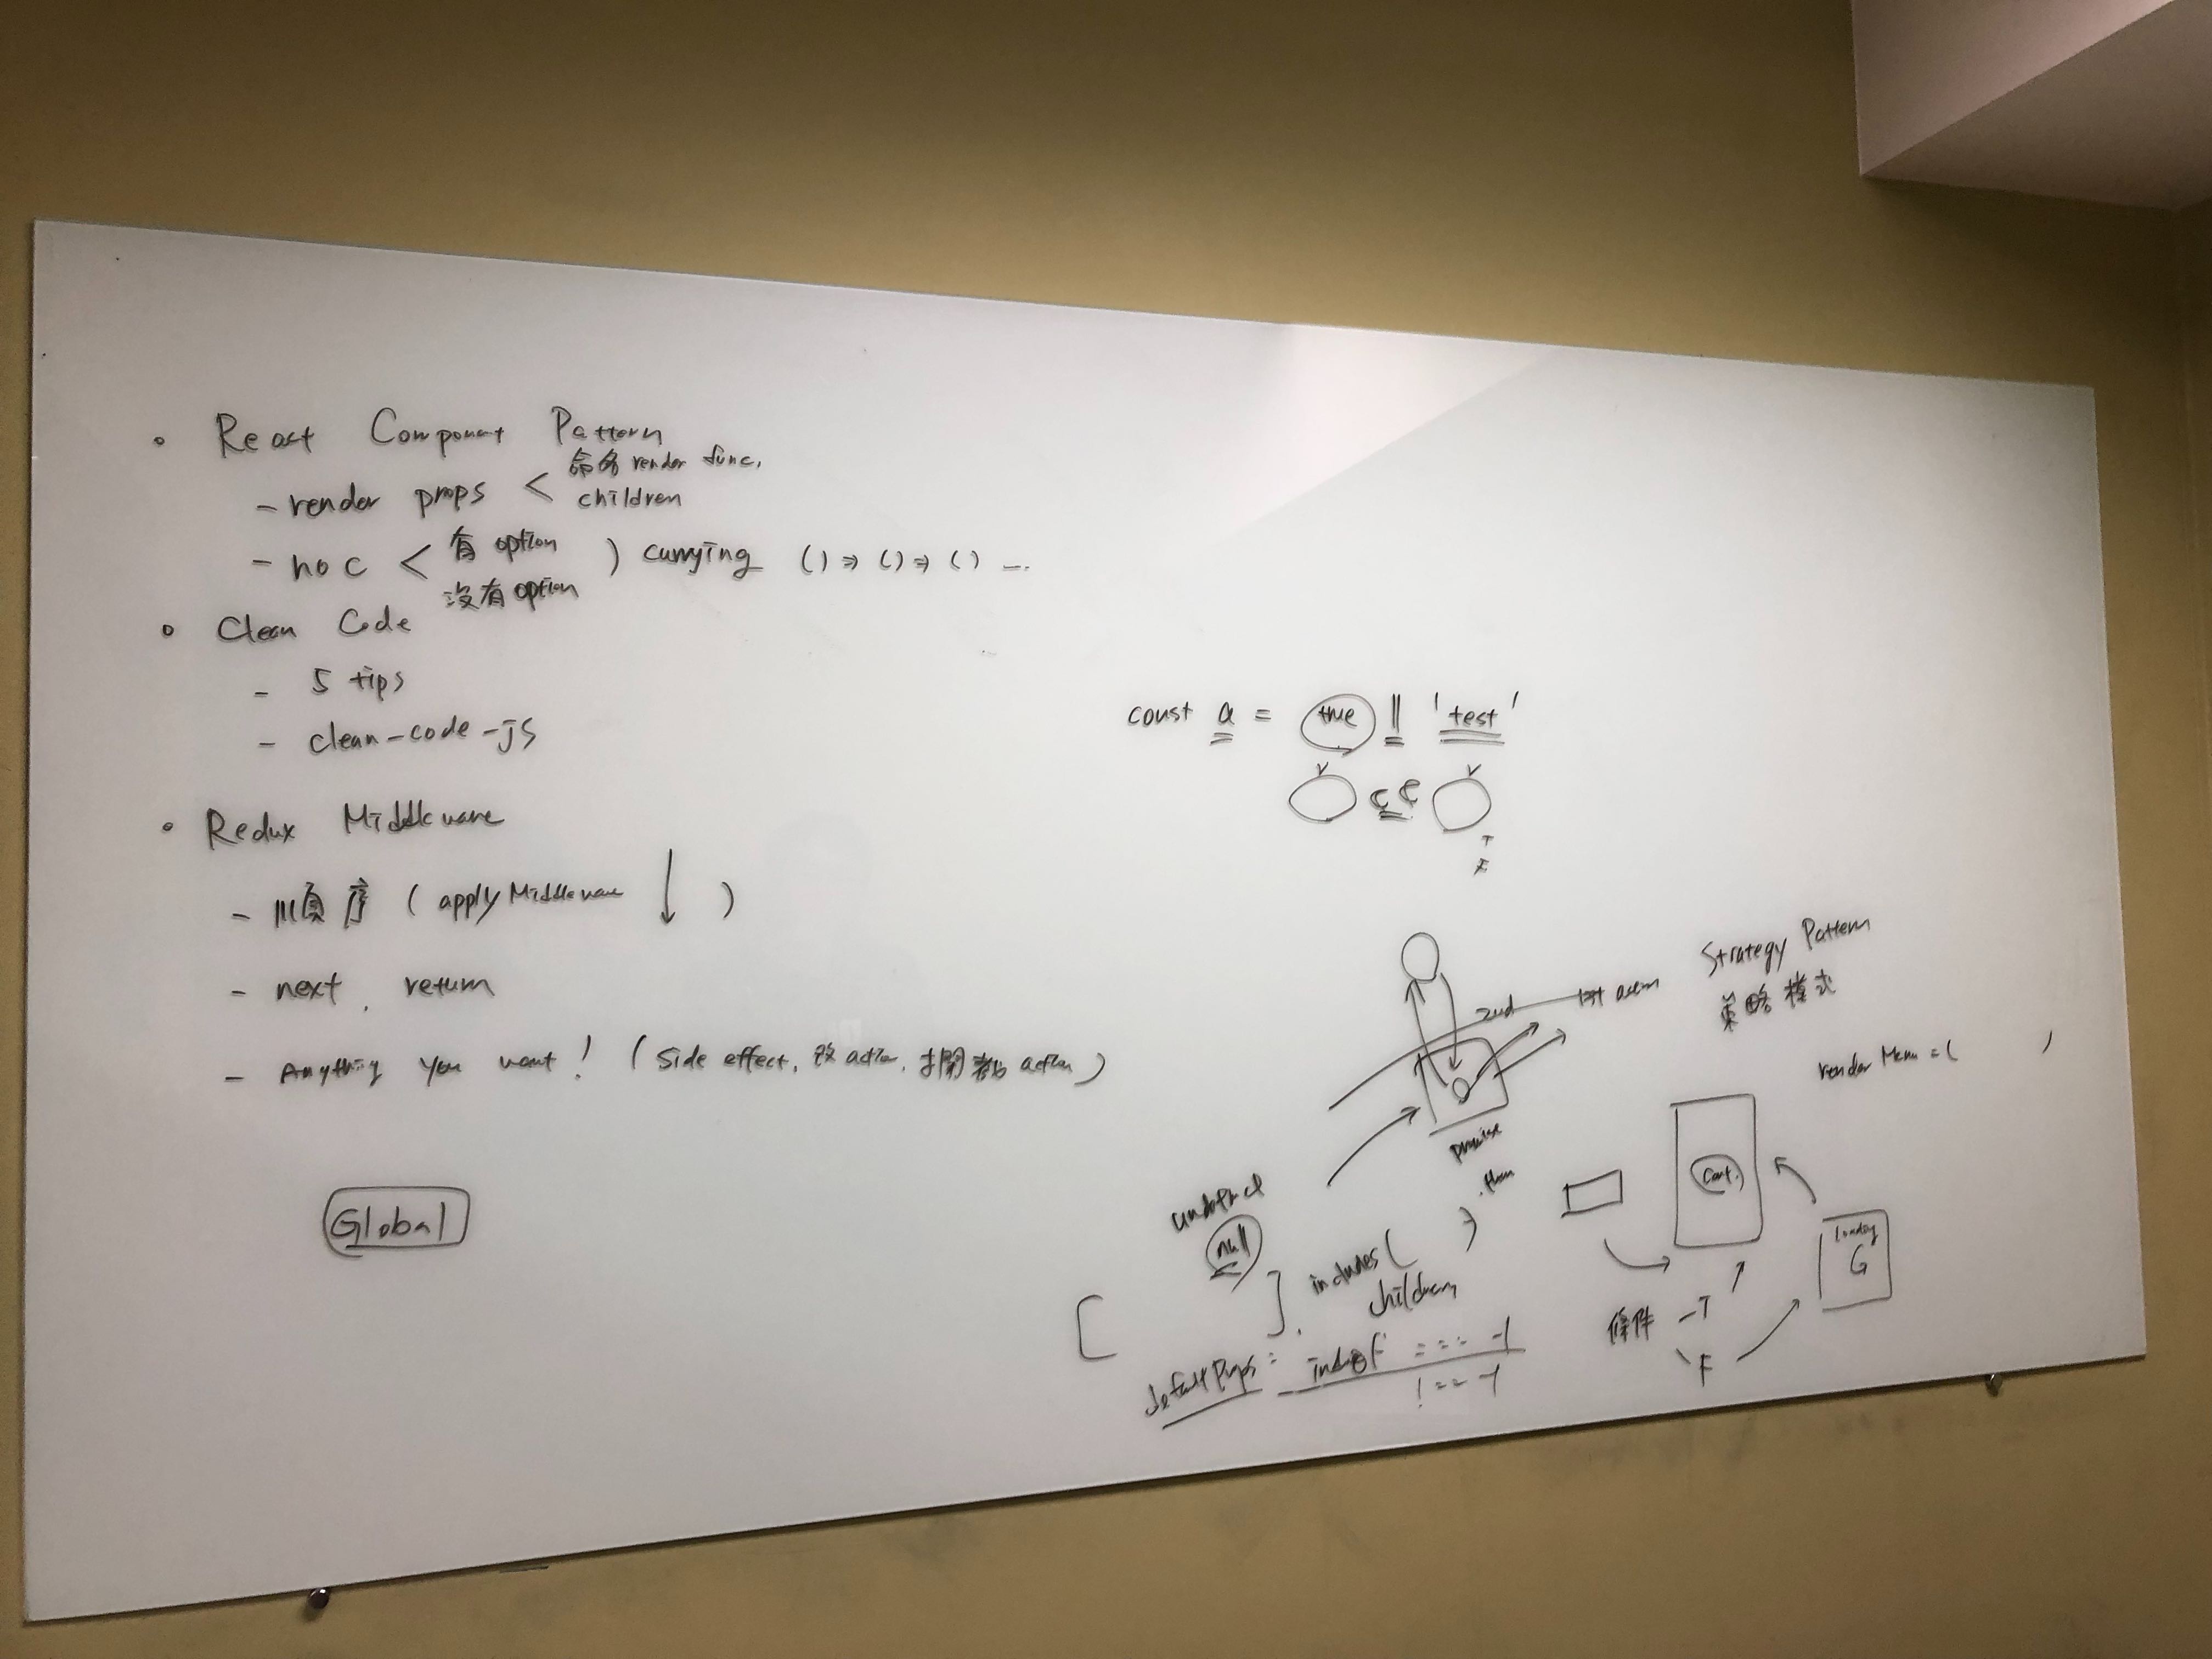 • React Component Pattern
- render props < 命名 render func.
children
- hoc < 有 option ) currying () => () => () ...
沒有 option
• Clean Code
- 5 tips
- clean-code-js
• Redux Middleware
- 順序 ( apply Middleware ↓ )
- next, return
- Anything you want! (side effect, 改 action, action)
Global
const a = true || 'test'
&&
T
F
2nd 1st action
promise
.then
Strategy Pattern
策略模式
render Menu = ( )
undefined
null
[ ]. includes( )
children
defaultProps = indexOf === -1
!== -1
Cont.
loading
G
條件 - T
\ F